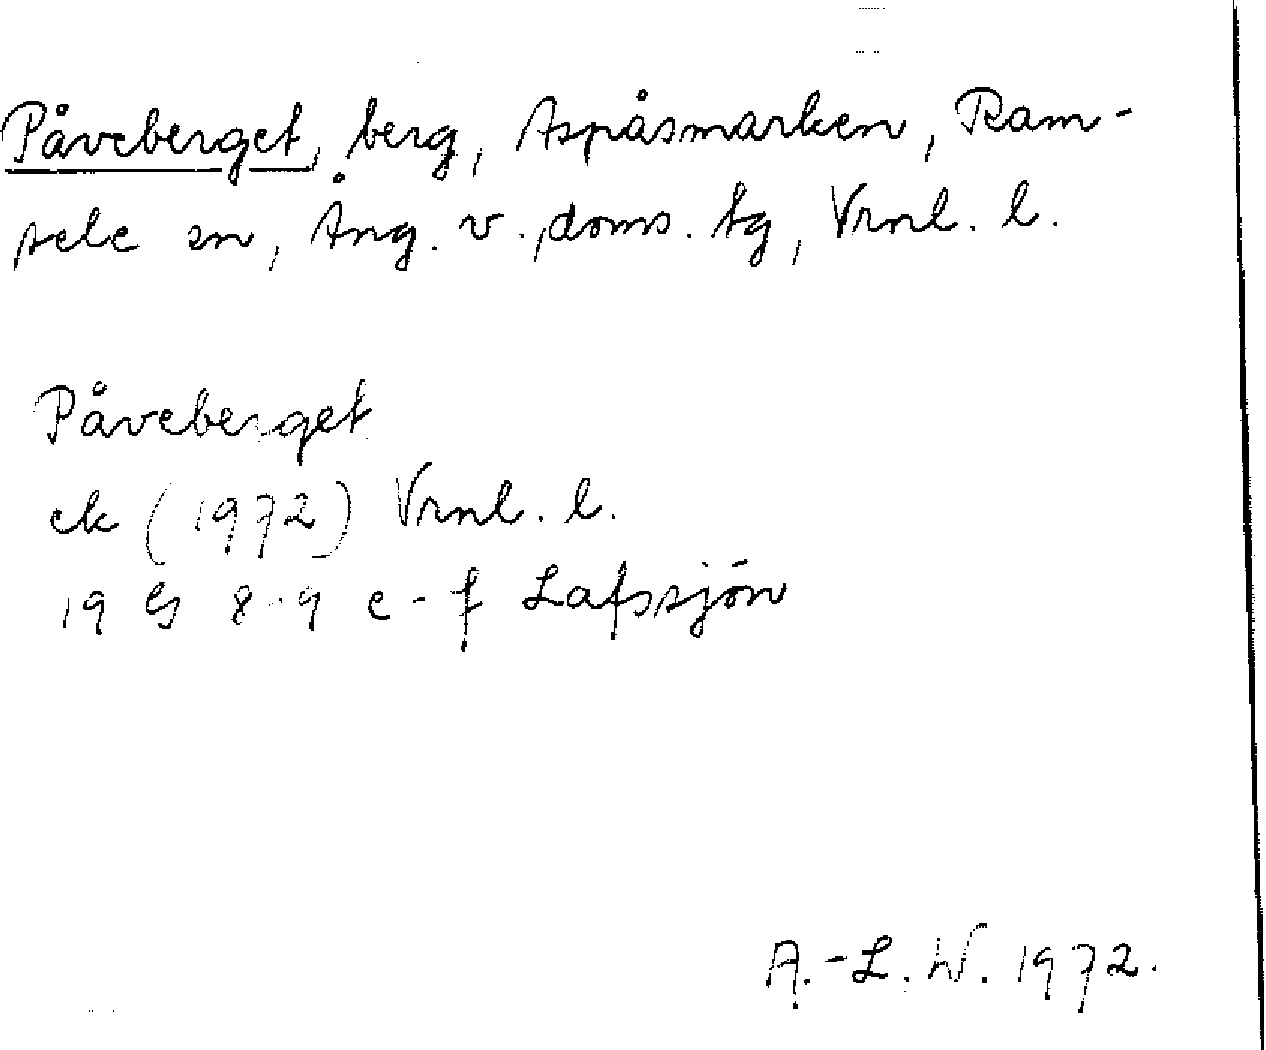 Påveberget, berg, Aspåsmarken, Ram-
sele sn, Ång. v. doms. tg, Vrnl. l.
Påveberget
ek (1972) Vrnl. l.
19 G 8-9 e-f Lafssjön
A.-L. W. 1972.